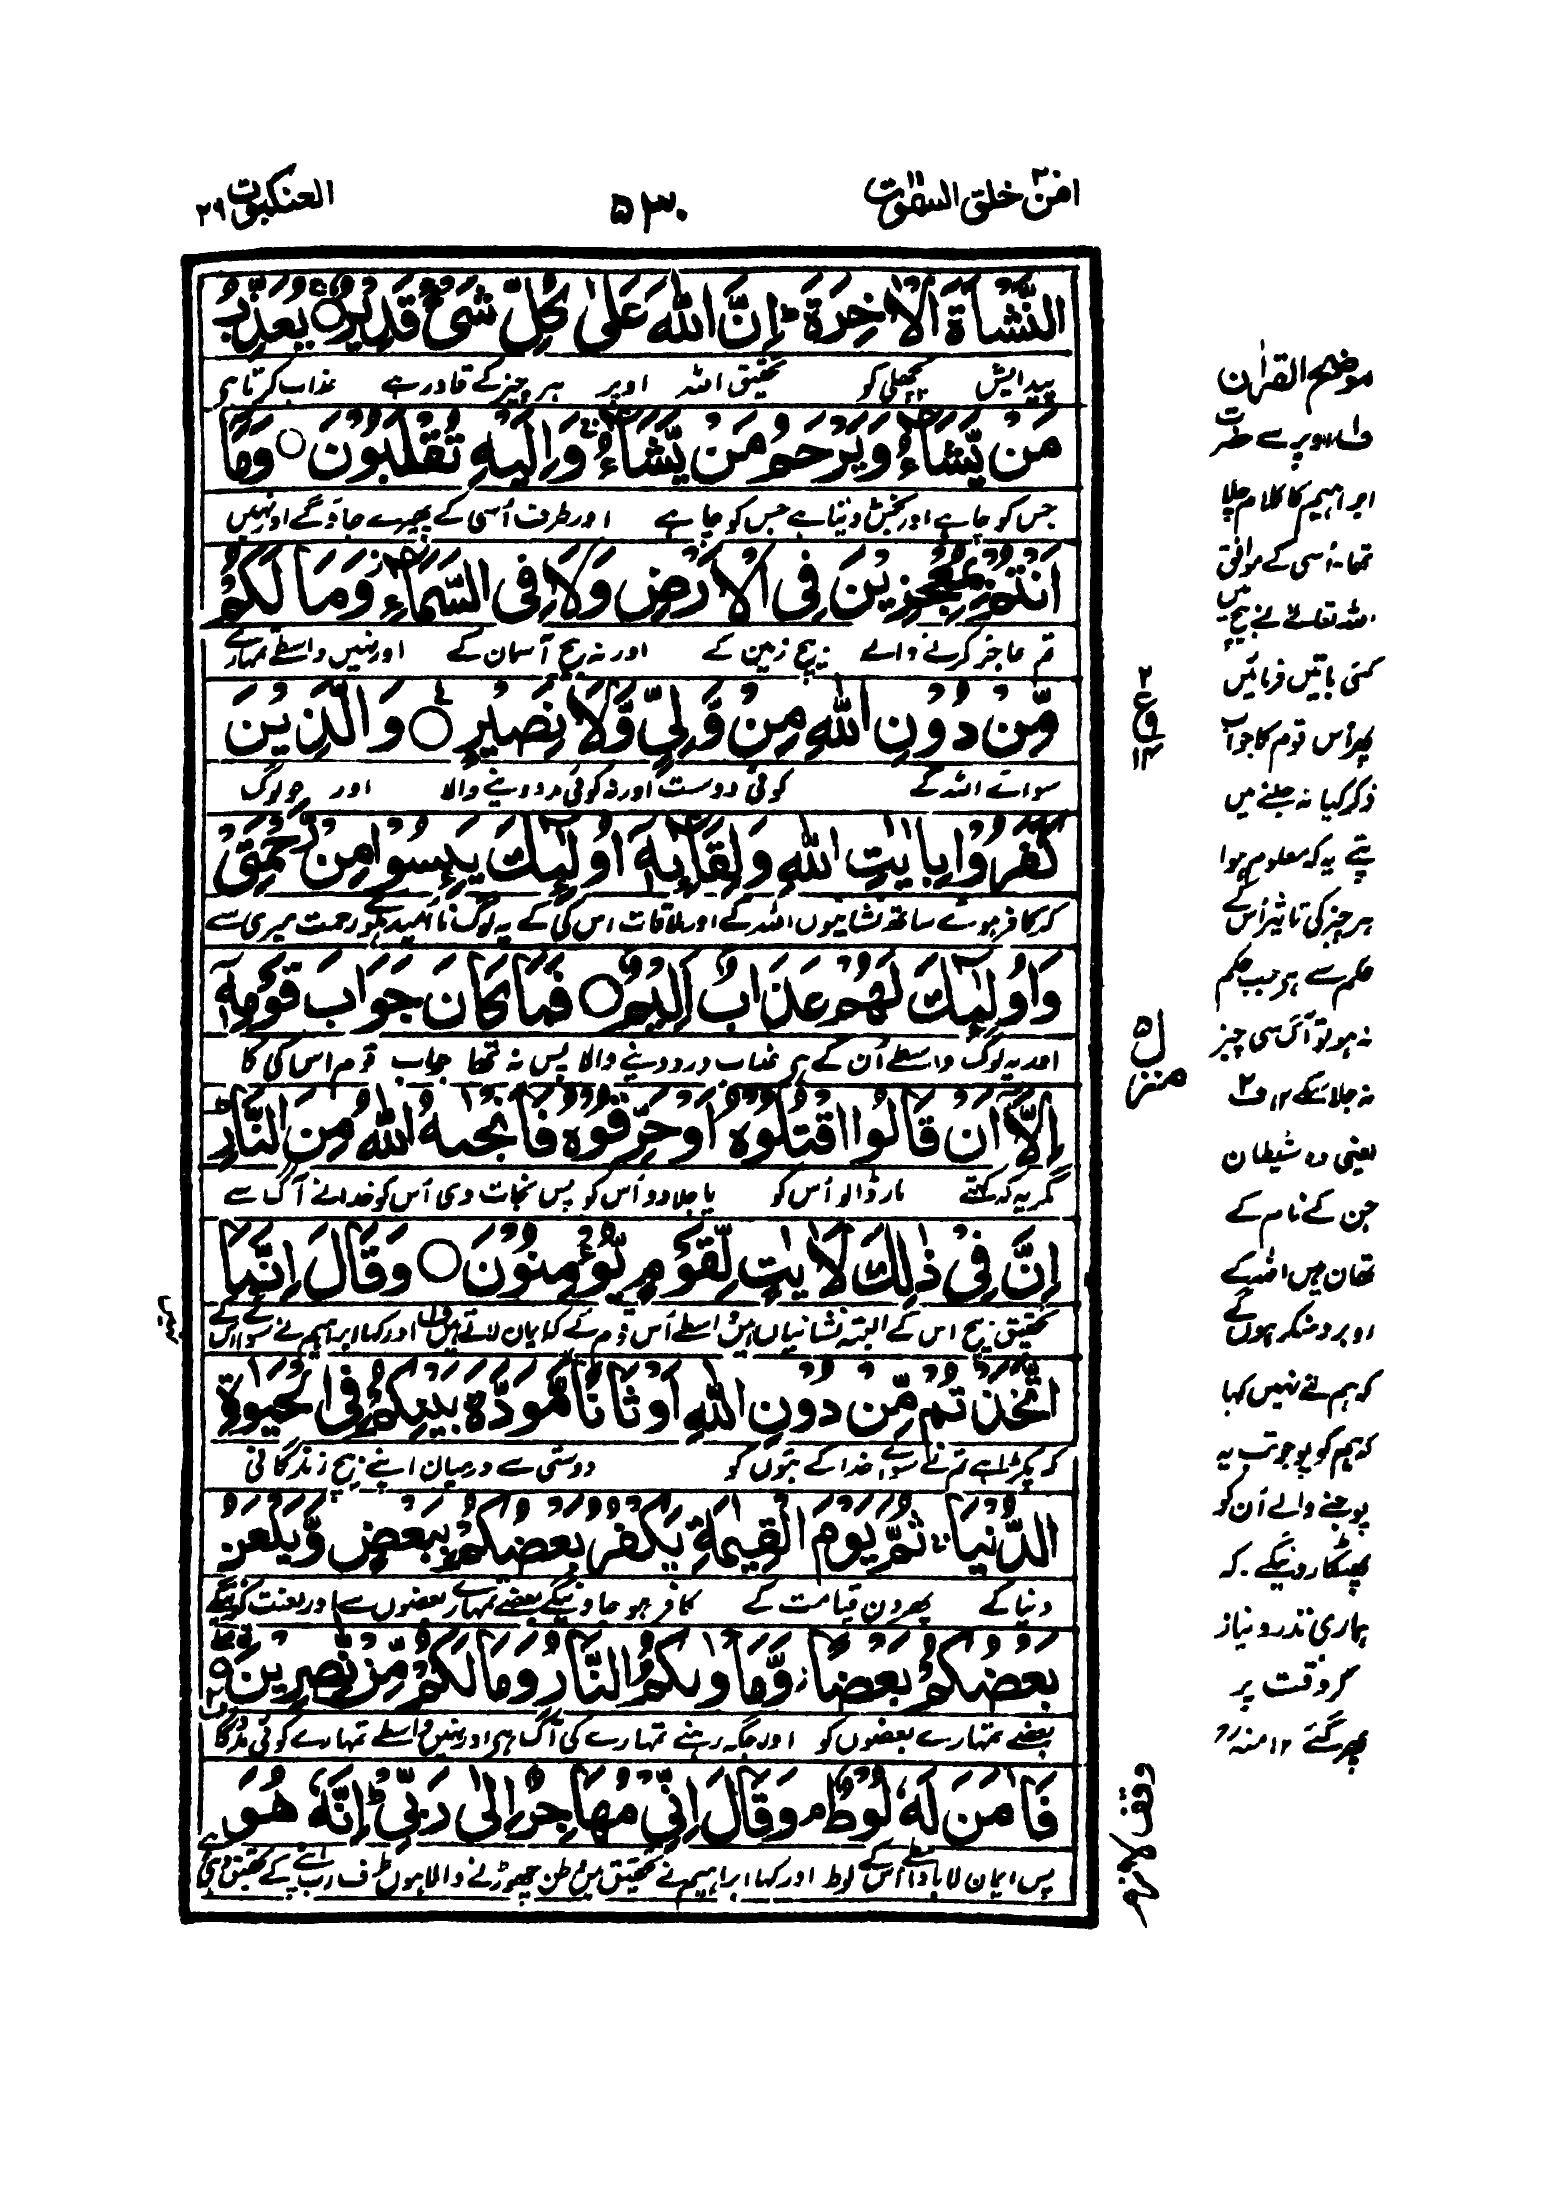 امن خلق السمٰوٰت ۲۰
۵۳۰
العنكبوت ۲۹
النَّشْاَةَ الْاٰخِرَةَ ؕ اِنَّ اللّٰهَ عَلٰى كُلِّ شَىْءٍ قَدِيْرٌ ○ يُعَذِّبُ
پیدایش پچھلی کو تحقیق اللہ اوپر ہر چیز کے قادر ہے عذاب کرتا ہے
مَنْ يَّشَآءُ وَيَرْحَمُ مَنْ يَّشَآءُ ۚ وَاِلَيْهِ تُقْلَبُوْنَ ○ وَمَآ
جس کو چاہے اور بخش دیتا ہے جس کو چاہے اور طرف اُسی کے پھیرے جاؤ گے اور نہیں
اَنْتُمْ بِمُعْجِزِيْنَ فِى الْاَرْضِ وَلَا فِى السَّمَآءِ ز وَمَا لَكُمْ
تم عاجز کرنے والے بیچ زمین کے اور نہ بیچ آسمان کے اور نہیں واسطے تمہارے
مِّنْ دُوْنِ اللّٰهِ مِنْ وَّلِىٍّ وَّلَا نَصِيْرٍ ○ وَالَّذِيْنَ
سوائے اللہ کے کوئی دوست اور نہ کوئی مدد دینے والا اور جو لوگ
كَفَرُوْا بِاٰيٰتِ اللّٰهِ وَلِقَآئِهٖٓ اُولٰٓئِكَ يَئِسُوْا مِنْ رَّحْمَتِىْ
کہ کافر ہوئے ساتھ نشانیوں اللہ کے اور ملاقات اس کی کے یہ لوگ ناامید ہوئے رحمت میری سے
وَاُولٰٓئِكَ لَهُمْ عَذَابٌ اَلِيْمٌ ○ فَمَا كَانَ جَوَابَ قَوْمِهٖٓ
اور یہ لوگ واسطے اُن کے ہے عذاب درد دینے والا پس نہ تھا جواب قوم اس کی کا
اِلَّآ اَنْ قَالُوا اقْتُلُوْهُ اَوْ حَرِّقُوْهُ فَاَنْجٰىهُ اللّٰهُ مِنَ النَّارِ ؕ
مگر یہ کہ کہتے مار ڈالو اُس کو یا جلا دو اُس کو پس نجات دی اُس کو خدا نے آگ سے
اِنَّ فِىْ ذٰلِكَ لَاٰيٰتٍ لِّقَوْمٍ يُّؤْمِنُوْنَ ○ وَقَالَ اِنَّمَا
تحقیق بیچ اس کے البتہ نشانیاں ہیں واسطے اُس قوم کے کہ ایمان لاتے ہیں اور کہا ابراہیم نے سوائے اس کے
اتَّخَذْتُمْ مِّنْ دُوْنِ اللّٰهِ اَوْثَانًا ۙ مَّوَدَّةَ بَيْنِكُمْ فِى الْحَيٰوةِ
کہ پکڑا ہے تم نے سوائے خدا کے بتوں کو دوستی سے درمیان اپنے بیچ زندگانی
الدُّنْيَا ۚ ثُمَّ يَوْمَ الْقِيٰمَةِ يَكْفُرُ بَعْضُكُمْ بِبَعْضٍ وَّيَلْعَنُ
دنیا کے پھر دن قیامت کے کافر ہو جاوینگے بعضے تمہارے بعضوں سے اور لعنت کرینگے
بَعْضُكُمْ بَعْضًا ز وَّمَاْوٰىكُمُ النَّارُ وَمَا لَكُمْ مِّنْ نّٰصِرِيْنَ
بعضے تمہارے بعضوں کو اور جگہ رہنے تمہارے کی آگ ہے اور نہیں واسطے تمہارے کوئی مددگار
فَاٰمَنَ لَهٗ لُوْطٌ ۘ وَقَالَ اِنِّىْ مُهَاجِرٌ اِلٰى رَبِّىْ ؕ اِنَّهٗ هُوَ
پس ایمان لایا واسطے اُس کے لوط اور کہا ابراہیم نے تحقیق میں وطن چھوڑنے والا ہوں طرف رب اپنے کے تحقیق وہی ہے
موضح القرآن
ف۱ اوپر سے حضرت
ابراہیم کا کلام چلا
تھا۔ اُسی کے موافق
اللہ تعالےٰ نے بیچ میں
کئی باتیں فرمائیں
پھر اُس قوم کا جواب
ذکر کیا نہ جلنے میں
پتے یہ کہ معلوم ہوا
ہر چیز کی تاثیر اُس کے
حکم سے ہے جب حکم
نہ ہو تو آگ سی چیز
نہ جلا سکے ۱۲ ف۲
یعنی وہ شیطان
جن کے نام کے
تھان ہیں اللہ کے
روبرو منکر ہوں گے
کہ ہم نے نہیں کہا
کہ ہم کو پوجو تب یہ
پوجنے والے اُن کو
پھٹکار دینگے۔ کہ
ہماری نذر و نیاز
کر وقت پر
پھر گئے ۱۲ منہ رح
۲
ع
۱۴
منزل ۵
وقف لازم